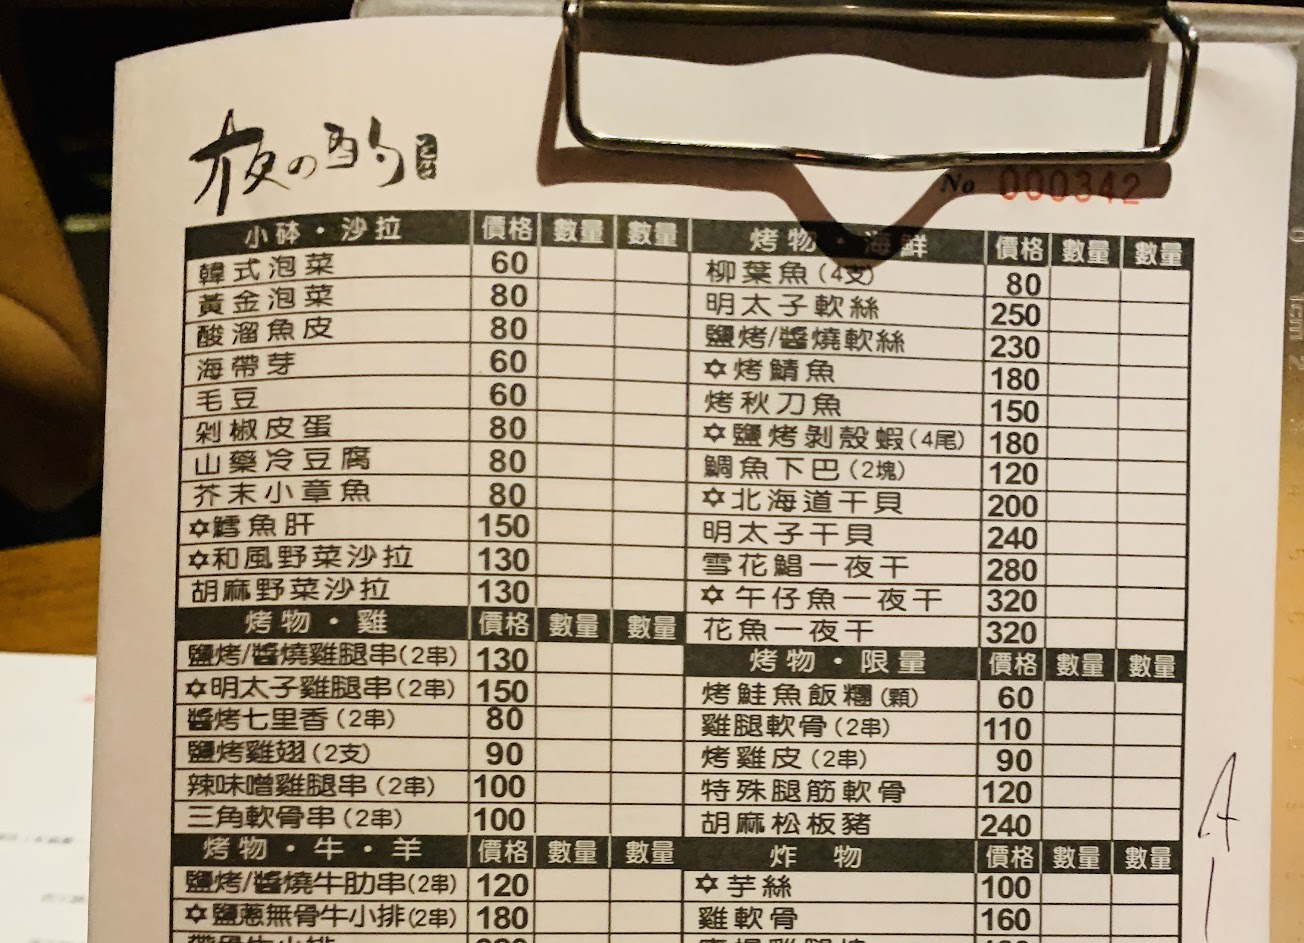 夜の酌
No 000342
小砵・沙拉 價格 數量 數量
韓式泡菜 60
黃金泡菜 80
酸溜魚皮 80
海帶芽 60
毛豆 60
剁椒皮蛋 80
山藥冷豆腐 80
芥末小章魚 80
✡鱈魚肝 150
✡和風野菜沙拉 130
胡麻野菜沙拉 130
烤物・雞 價格 數量 數量
鹽烤/醬燒雞腿串(2串) 130
✡明太子雞腿串(2串) 150
醬烤七里香(2串) 80
鹽烤雞翅(2支) 90
辣味噌雞腿串(2串) 100
三角軟骨串(2串) 100
烤物・牛・羊 價格 數量 數量
鹽烤/醬燒牛肋串(2串) 120
✡鹽蔥無骨牛小排(2串) 180
烤物・海鮮 價格 數量 數量
柳葉魚(4支) 80
明太子軟絲 250
鹽烤/醬燒軟絲 230
✡烤鯖魚 180
烤秋刀魚 150
✡鹽烤剝殼蝦(4尾) 180
鯛魚下巴(2塊) 120
✡北海道干貝 200
明太子干貝 240
雪花鯧一夜干 280
✡午仔魚一夜干 320
花魚一夜干 320
烤物・限量 價格 數量 數量
烤鮭魚飯糰(顆) 60
雞腿軟骨(2串) 110
烤雞皮(2串) 90
特殊腿筋軟骨 120
胡麻松板豬 240
炸物 價格 數量 數量
✡芋絲 100
雞軟骨 160
A